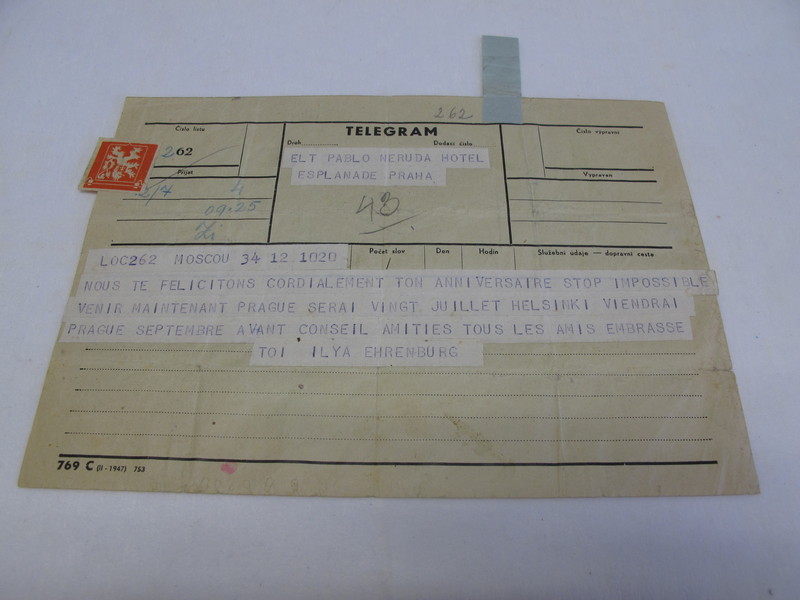 262
TELEGRAM
Číslo lístku
Druh
Dodací číslo
Číslo výpravní
262
ELT PABLO NERUDA HOTEL
ESPLANADE PRAHA
Přijat
Vypraven
2/7 4
09.25
43
LOC262 MOSCOU 34 12 1020
Počet slov Den Hodin Služební údaje — dopravní cesta
NOUS TE FELICITONS CORDIALEMENT TON ANNIVERSAIRE STOP IMPOSSIBLE
VENIR MAINTENANT PRAGUE SERAI VINGT JUILLET HELSINKI VIENDRAI
PRAGUE SEPTEMBRE AVANT CONSEIL AMITIES TOUS LES AMIS EMBRASSE
TOI ILYA EHRENBURG
769 C (II - 1947) 753